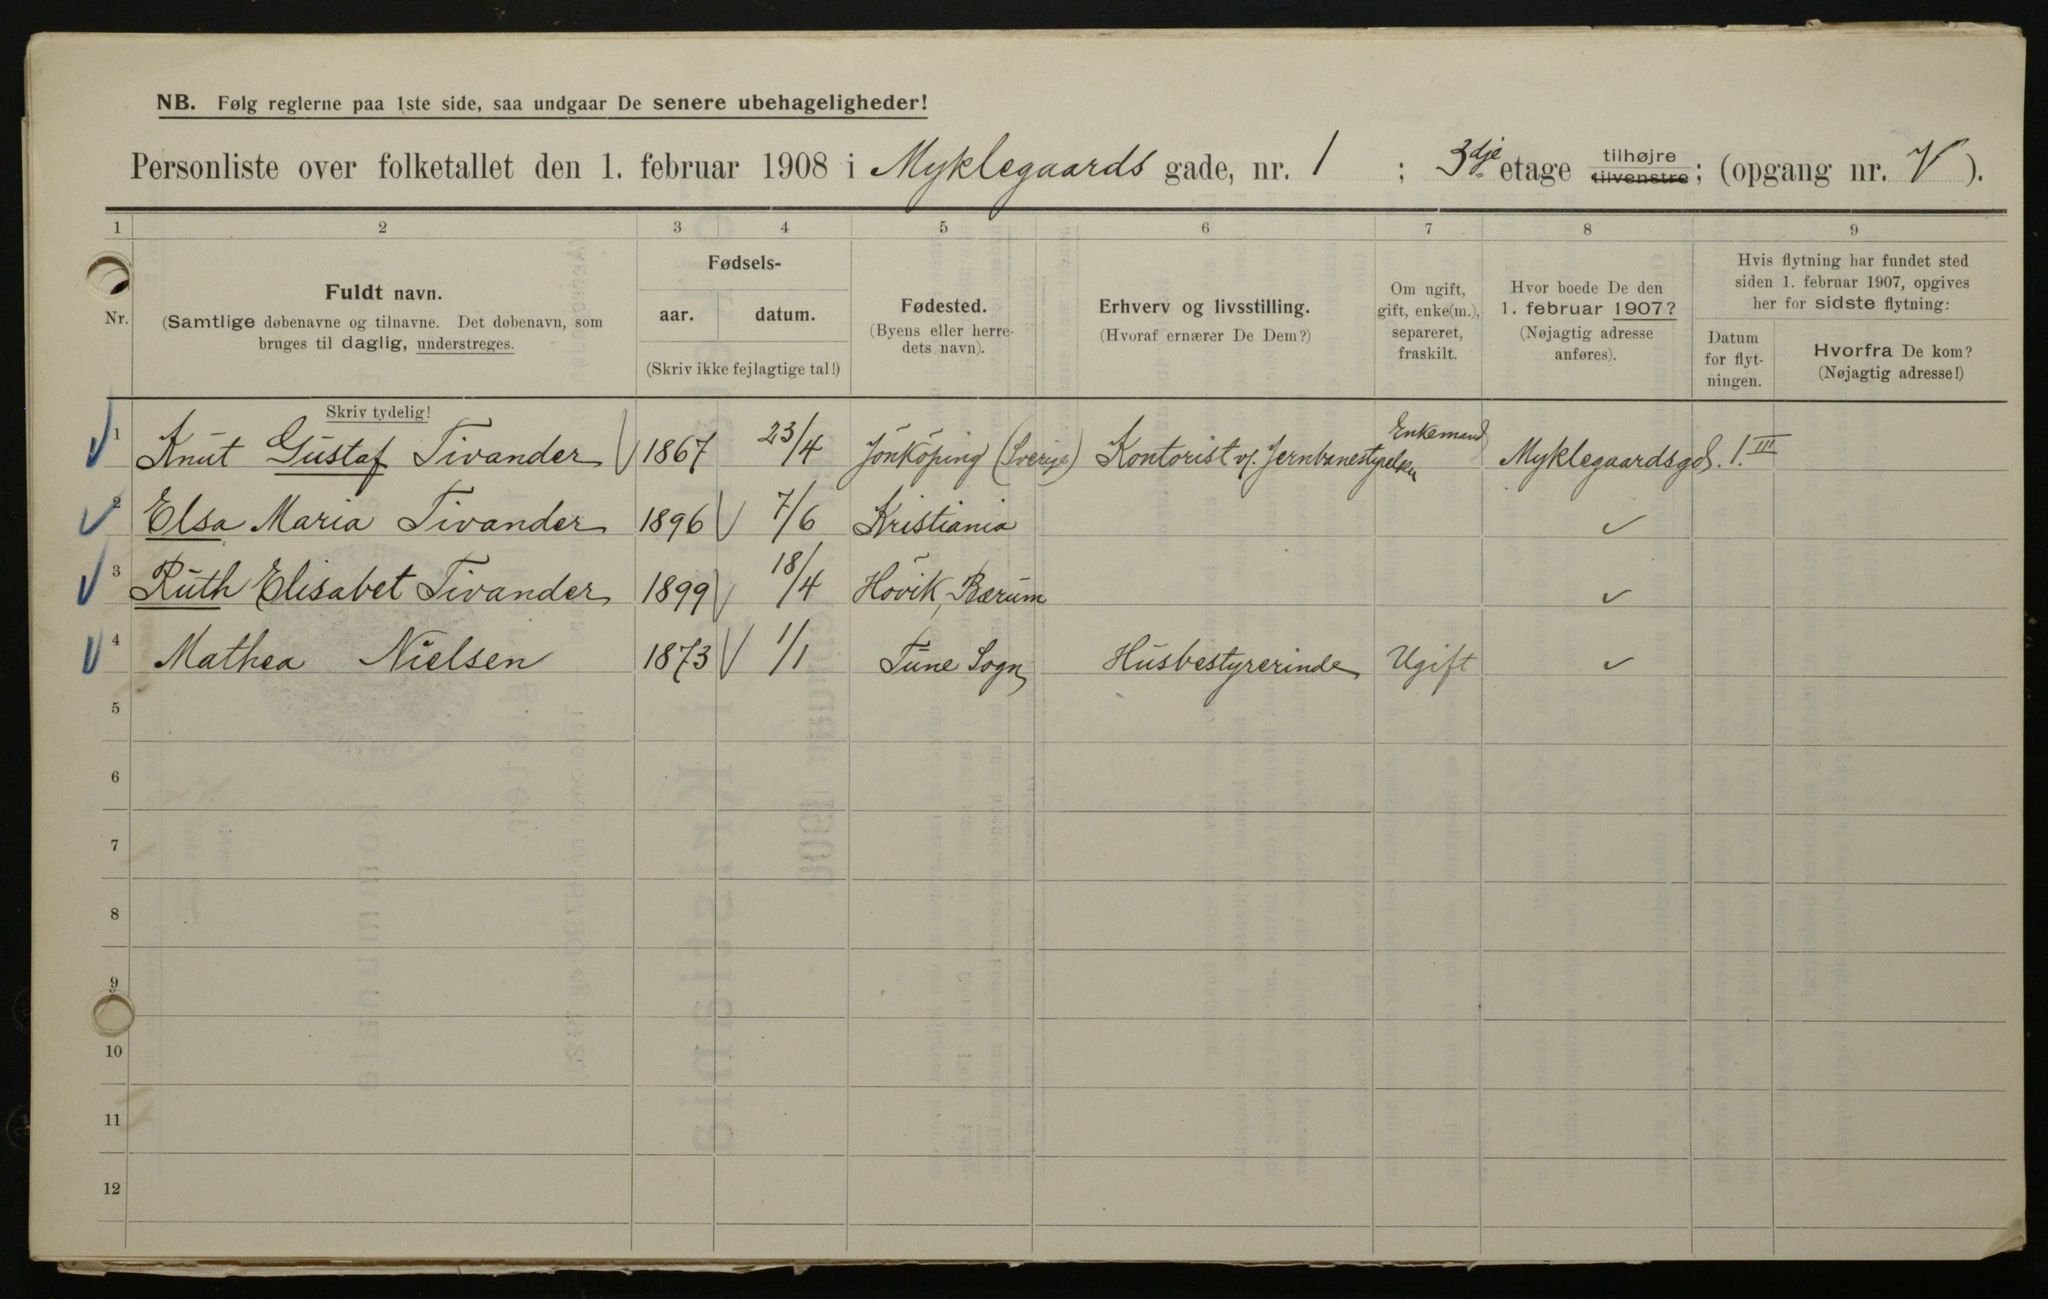 NB. Følg reglerne paa 1ste side, saa undgaar De senere ubehageligheder!
Personliste over folketallet den 1. februar 1908 i Myklegaards gade, nr. 1 ; 3dje etage tilhøjre tilvenstre ; (opgang nr. V ).
1 2 3 4 5 6 7 8 9
Nr.
Fuldt navn.
(Samtlige døbenavne og tilnavne. Det døbenavn, som
bruges til daglig, understreges.
Skriv tydelig!
Fødsels-
aar. datum.
(Skriv ikke fejlagtige tal!)
Fødested.
(Byens eller herre-
dets navn).
Erhverv og livsstilling.
(Hvoraf ernærer De Dem?)
Om ugift,
gift, enke(m.),
separeret,
fraskilt.
Hvor boede De den
1. februar 1907?
(Nøjagtig adresse
anføres).
Hvis flytning har fundet sted
siden 1. februar 1907, opgives
her for sidste flytning:
Datum
for flyt-
ningen.
Hvorfra De kom?
(Nøjagtig adresse!)
1 Knut Gustaf Tivander 1867 23/4 Jönköping (Sverige) Kontorist v/. Jernbanestyrelsen Enkemand Myklegaardsgd. 1. III
2 Elsa Maria Tivander 1896 7/6 Kristiania ✓
3 Ruth Elisabet Tivander 1899 18/4 Hövik, Bærum ✓
4 Mathea Nielsen 1873 1/1 Tune Sogn Husbestyrerinde Ugift ✓
5
6
7
8
9
10
11
12